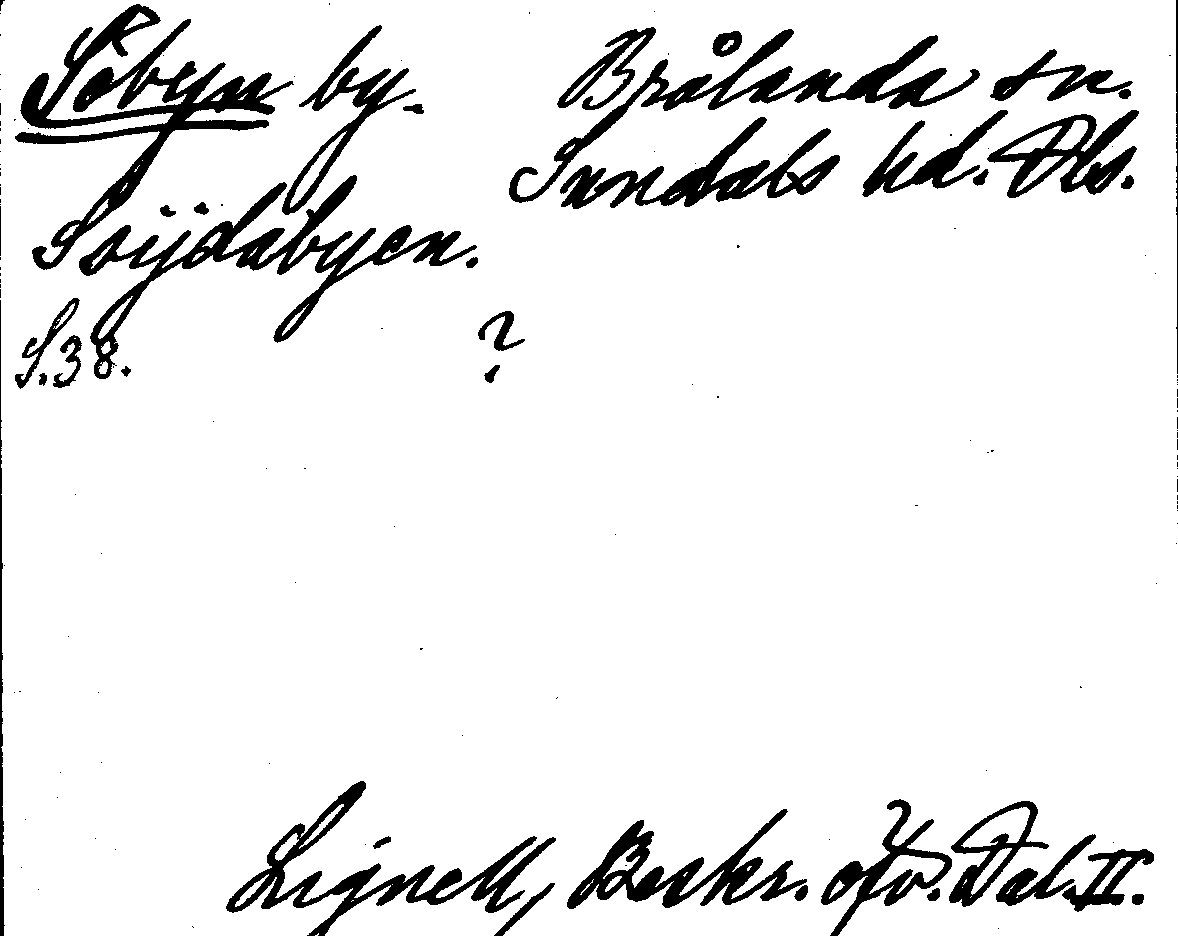 Söbyn by. Brålanda sn.
Sundals hd. Dls.
Söijdabyen.
S.38. ?
Lignell, Beskr. öfv. Dal. II.